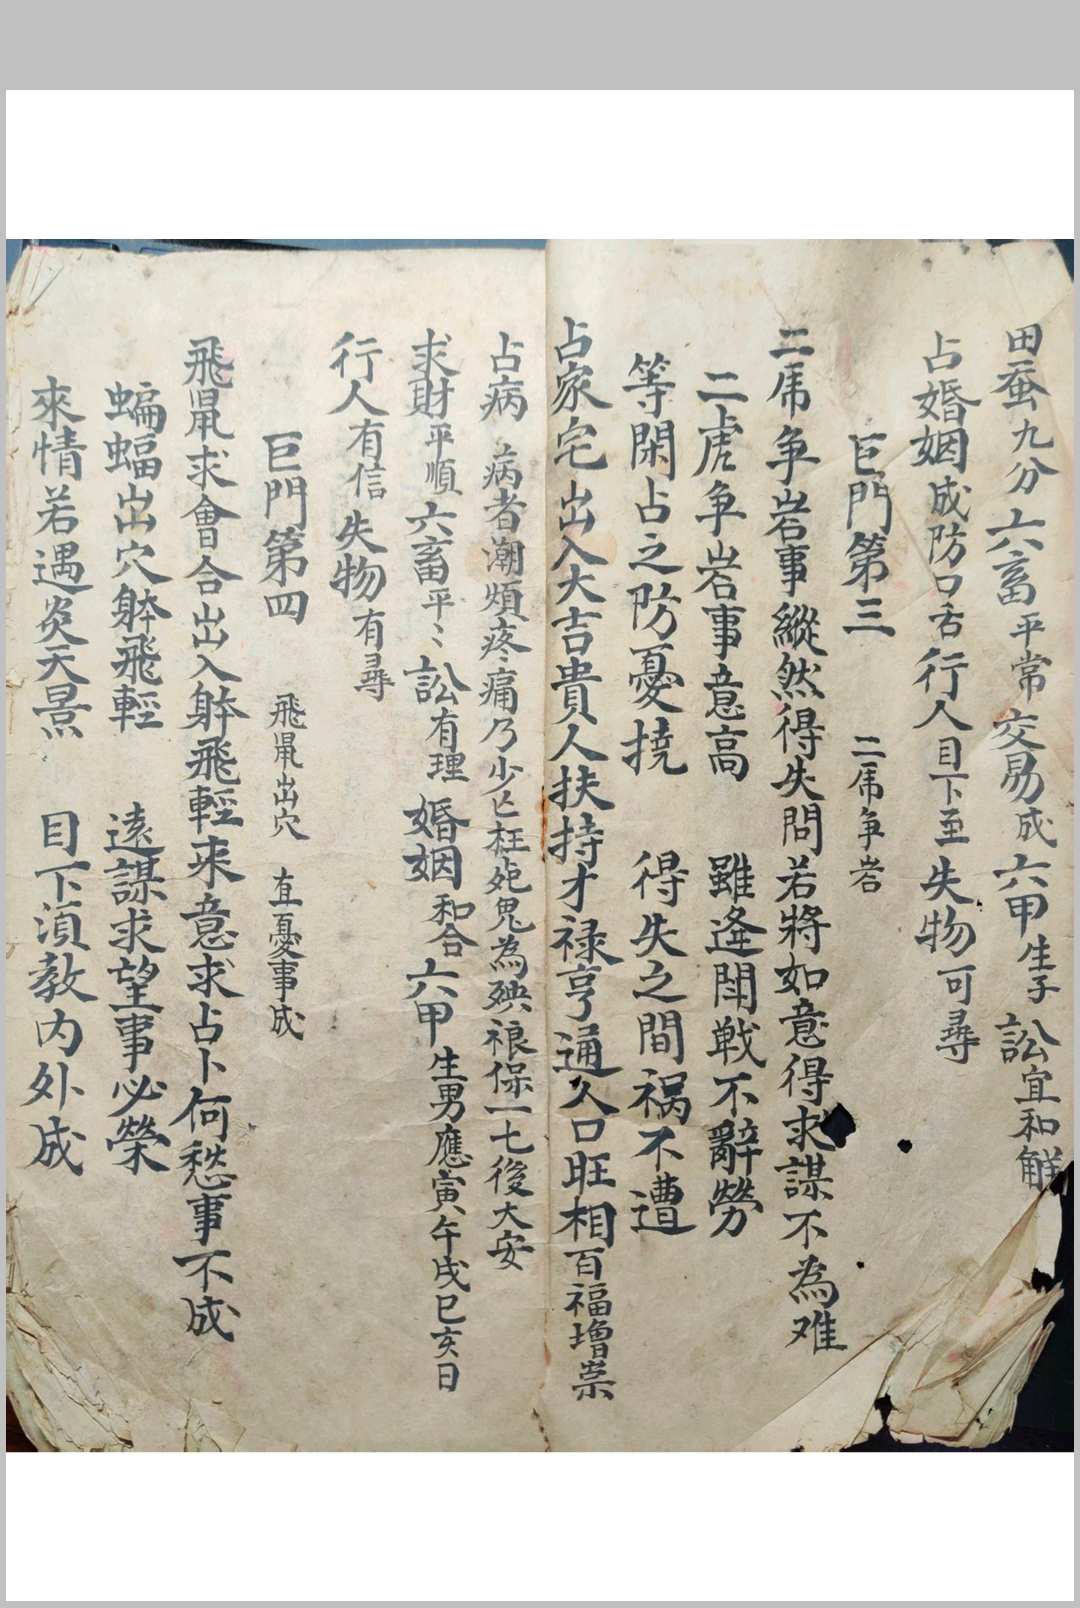 田蚕九分六畜平常交易成六甲生子訟宜和解
占婚姻成防口舌行人目下至失物可尋
巨門第三 二虎争岩
二虎争岩事縱然得失問若將如意得求謀不為难
二虎争岩事意高 雖逢閗戦不辭勞
等閑占之防憂撓 得失之間禍不遭
占家宅出入大吉貴人扶持才禄亨通人口旺相百福增崇
占病 病者潮煩疼痛乃少亡枉死鬼為殃禳保一七後大安
求財平順六畜平〻訟有理婚姻和合六甲生男應寅午戌巳亥日
行人有信失物有尋
巨門第四 飛鼠出穴 直憂事成
飛鼠求會合出入躰飛輕来意求占卜何愁事不成
蝙蝠出穴躰飛輕 遠謀求望事必榮
來情若遇炎天景 目下湏教内外成